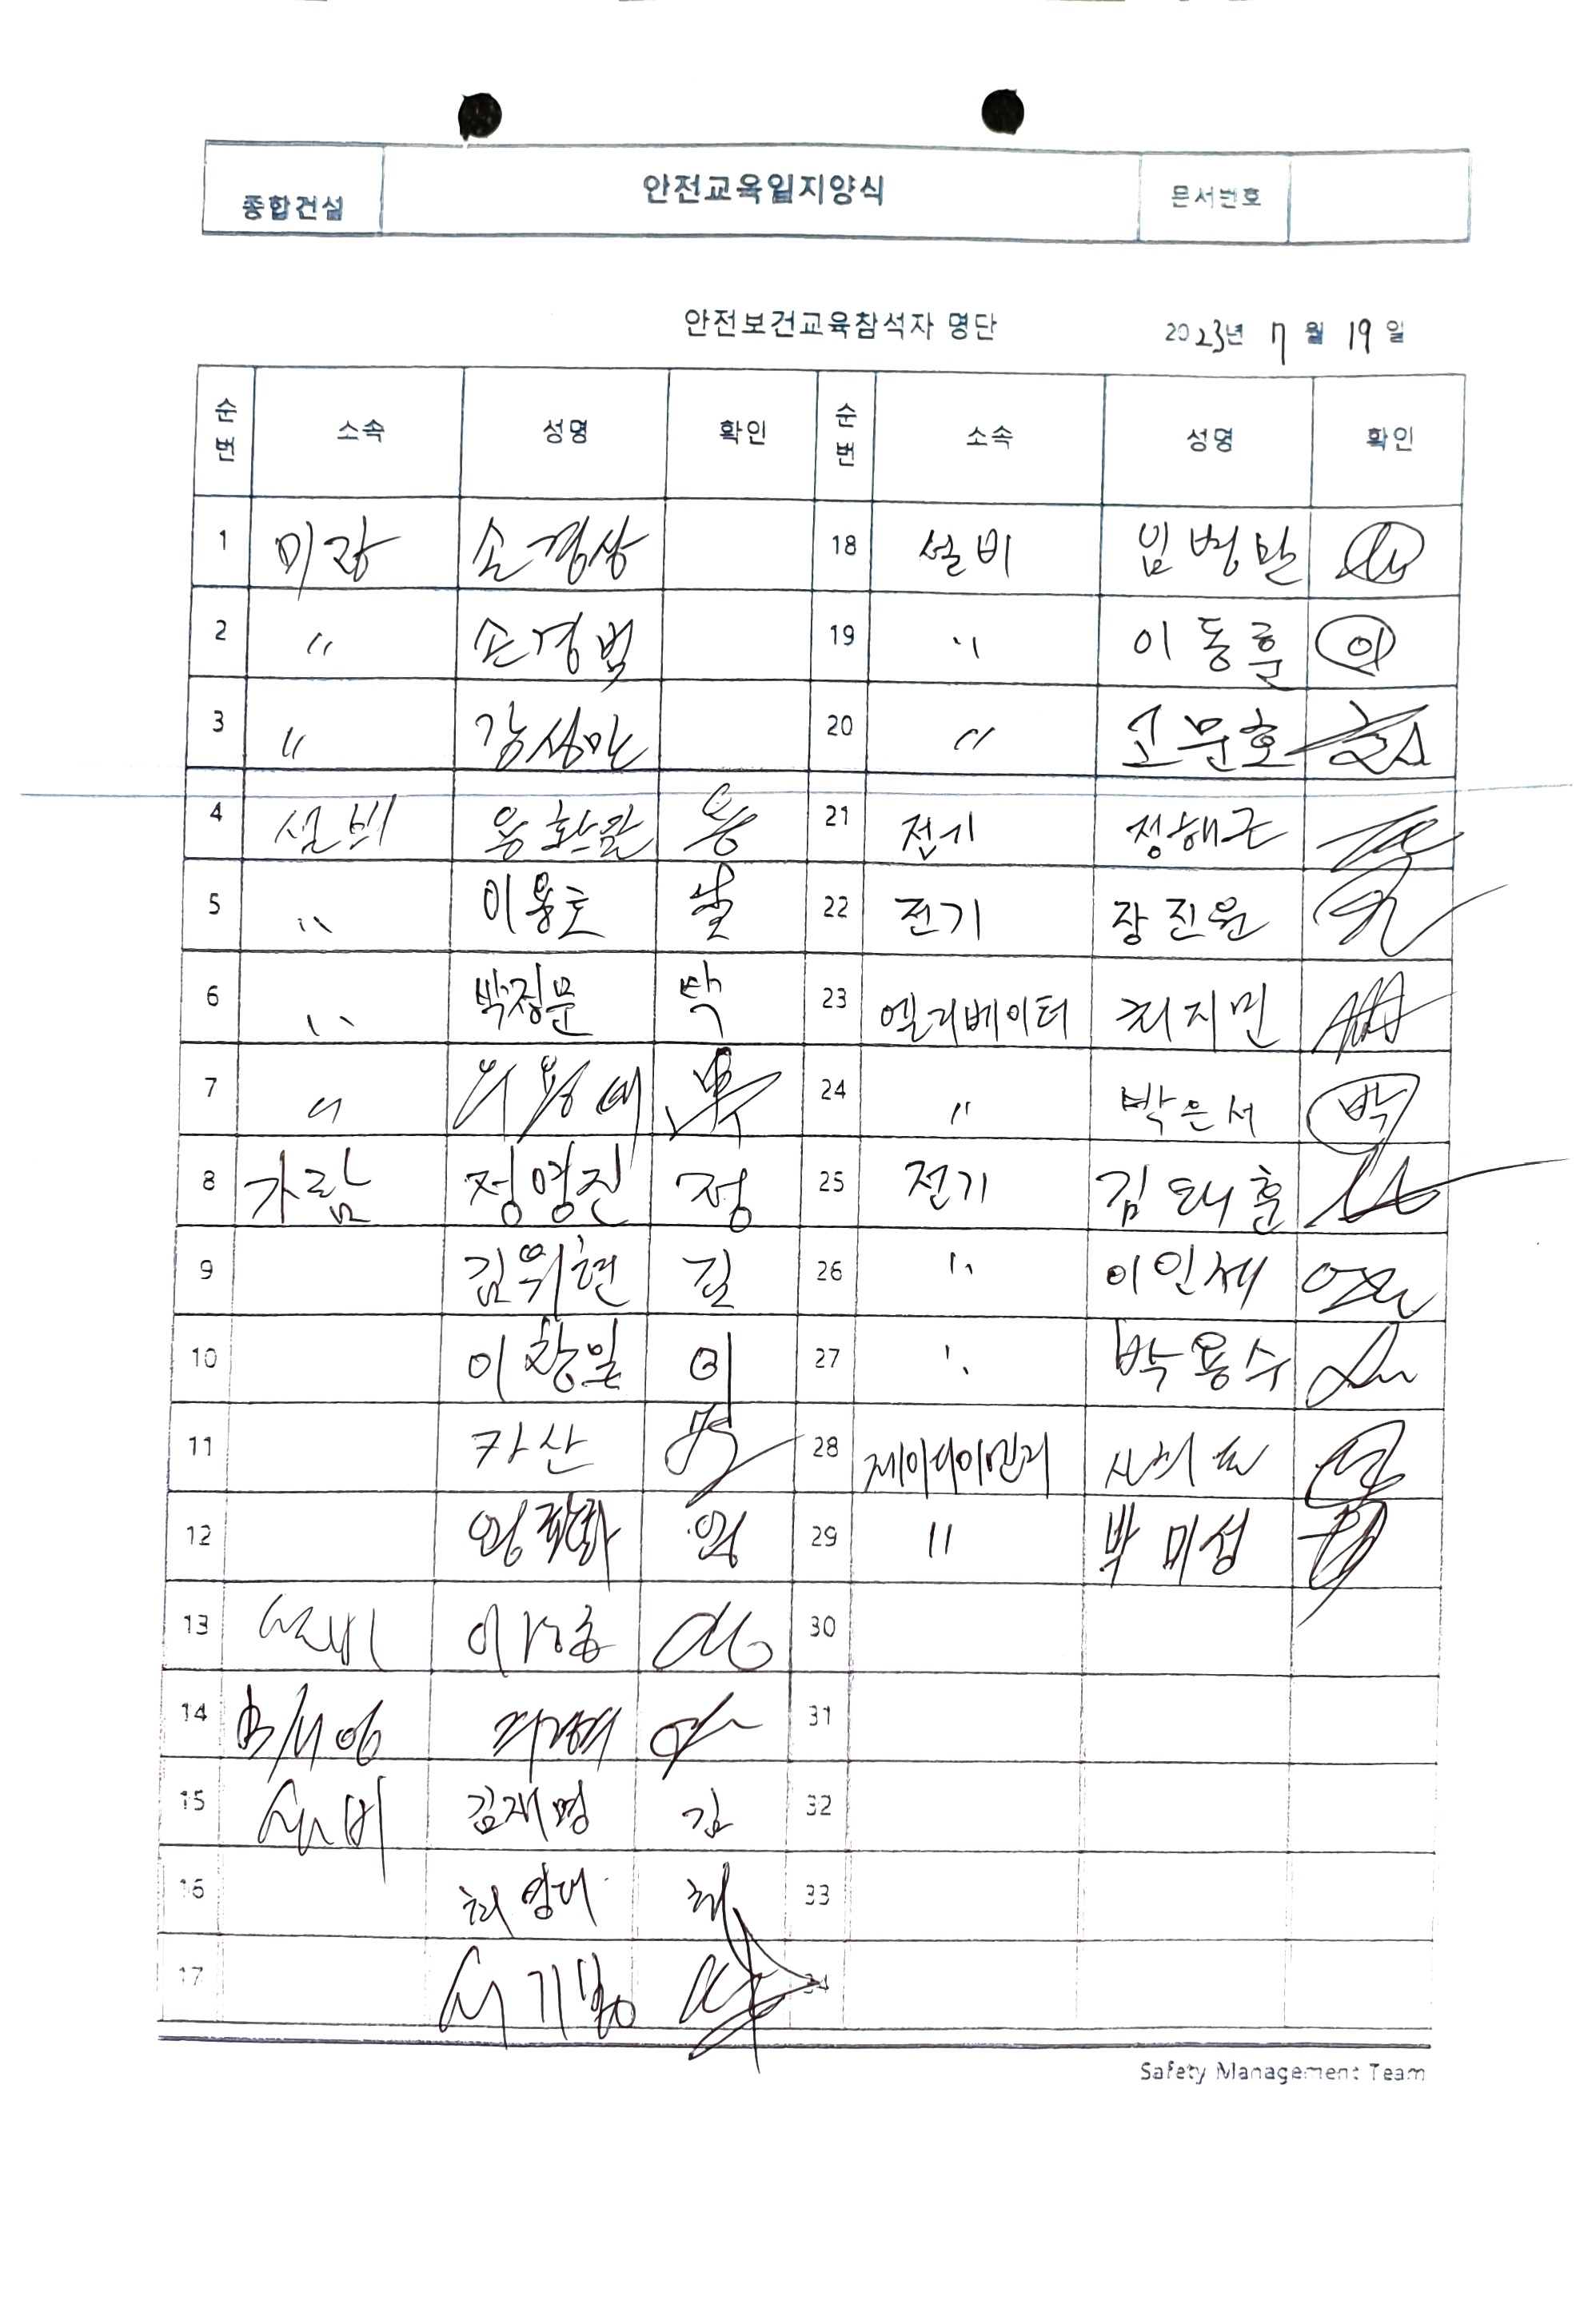 종합건설 안전교육일지양식 문서번호
안전보건교육참석자 명단 2023년 7월 19일
순번 소속 성명 확인 순번 소속 성명 확인
1 미장 손경상 18 설비
2 〃 손경범 19 〃 이동훈 이
3 〃 강성만 20 〃 고문호
4 설비 용 21 전기 정해근
5 〃 이용호 22 전기 장진원
6 〃 박정문 박 23 엘리베이터 최지민
7 〃 24 〃 박은서 박
8 가람 정영진 정 25 전기 김태훈
9 김위현 김 26 〃 이인제
10 이창일 이 27 〃 박용수
11 카산 28 제이디이엔지
12 29 〃 박미성
13 설비 30
14 31
15 설비 김재명 김 32
16 최영대 최 33
17 서기봉 34
Safety Management Team